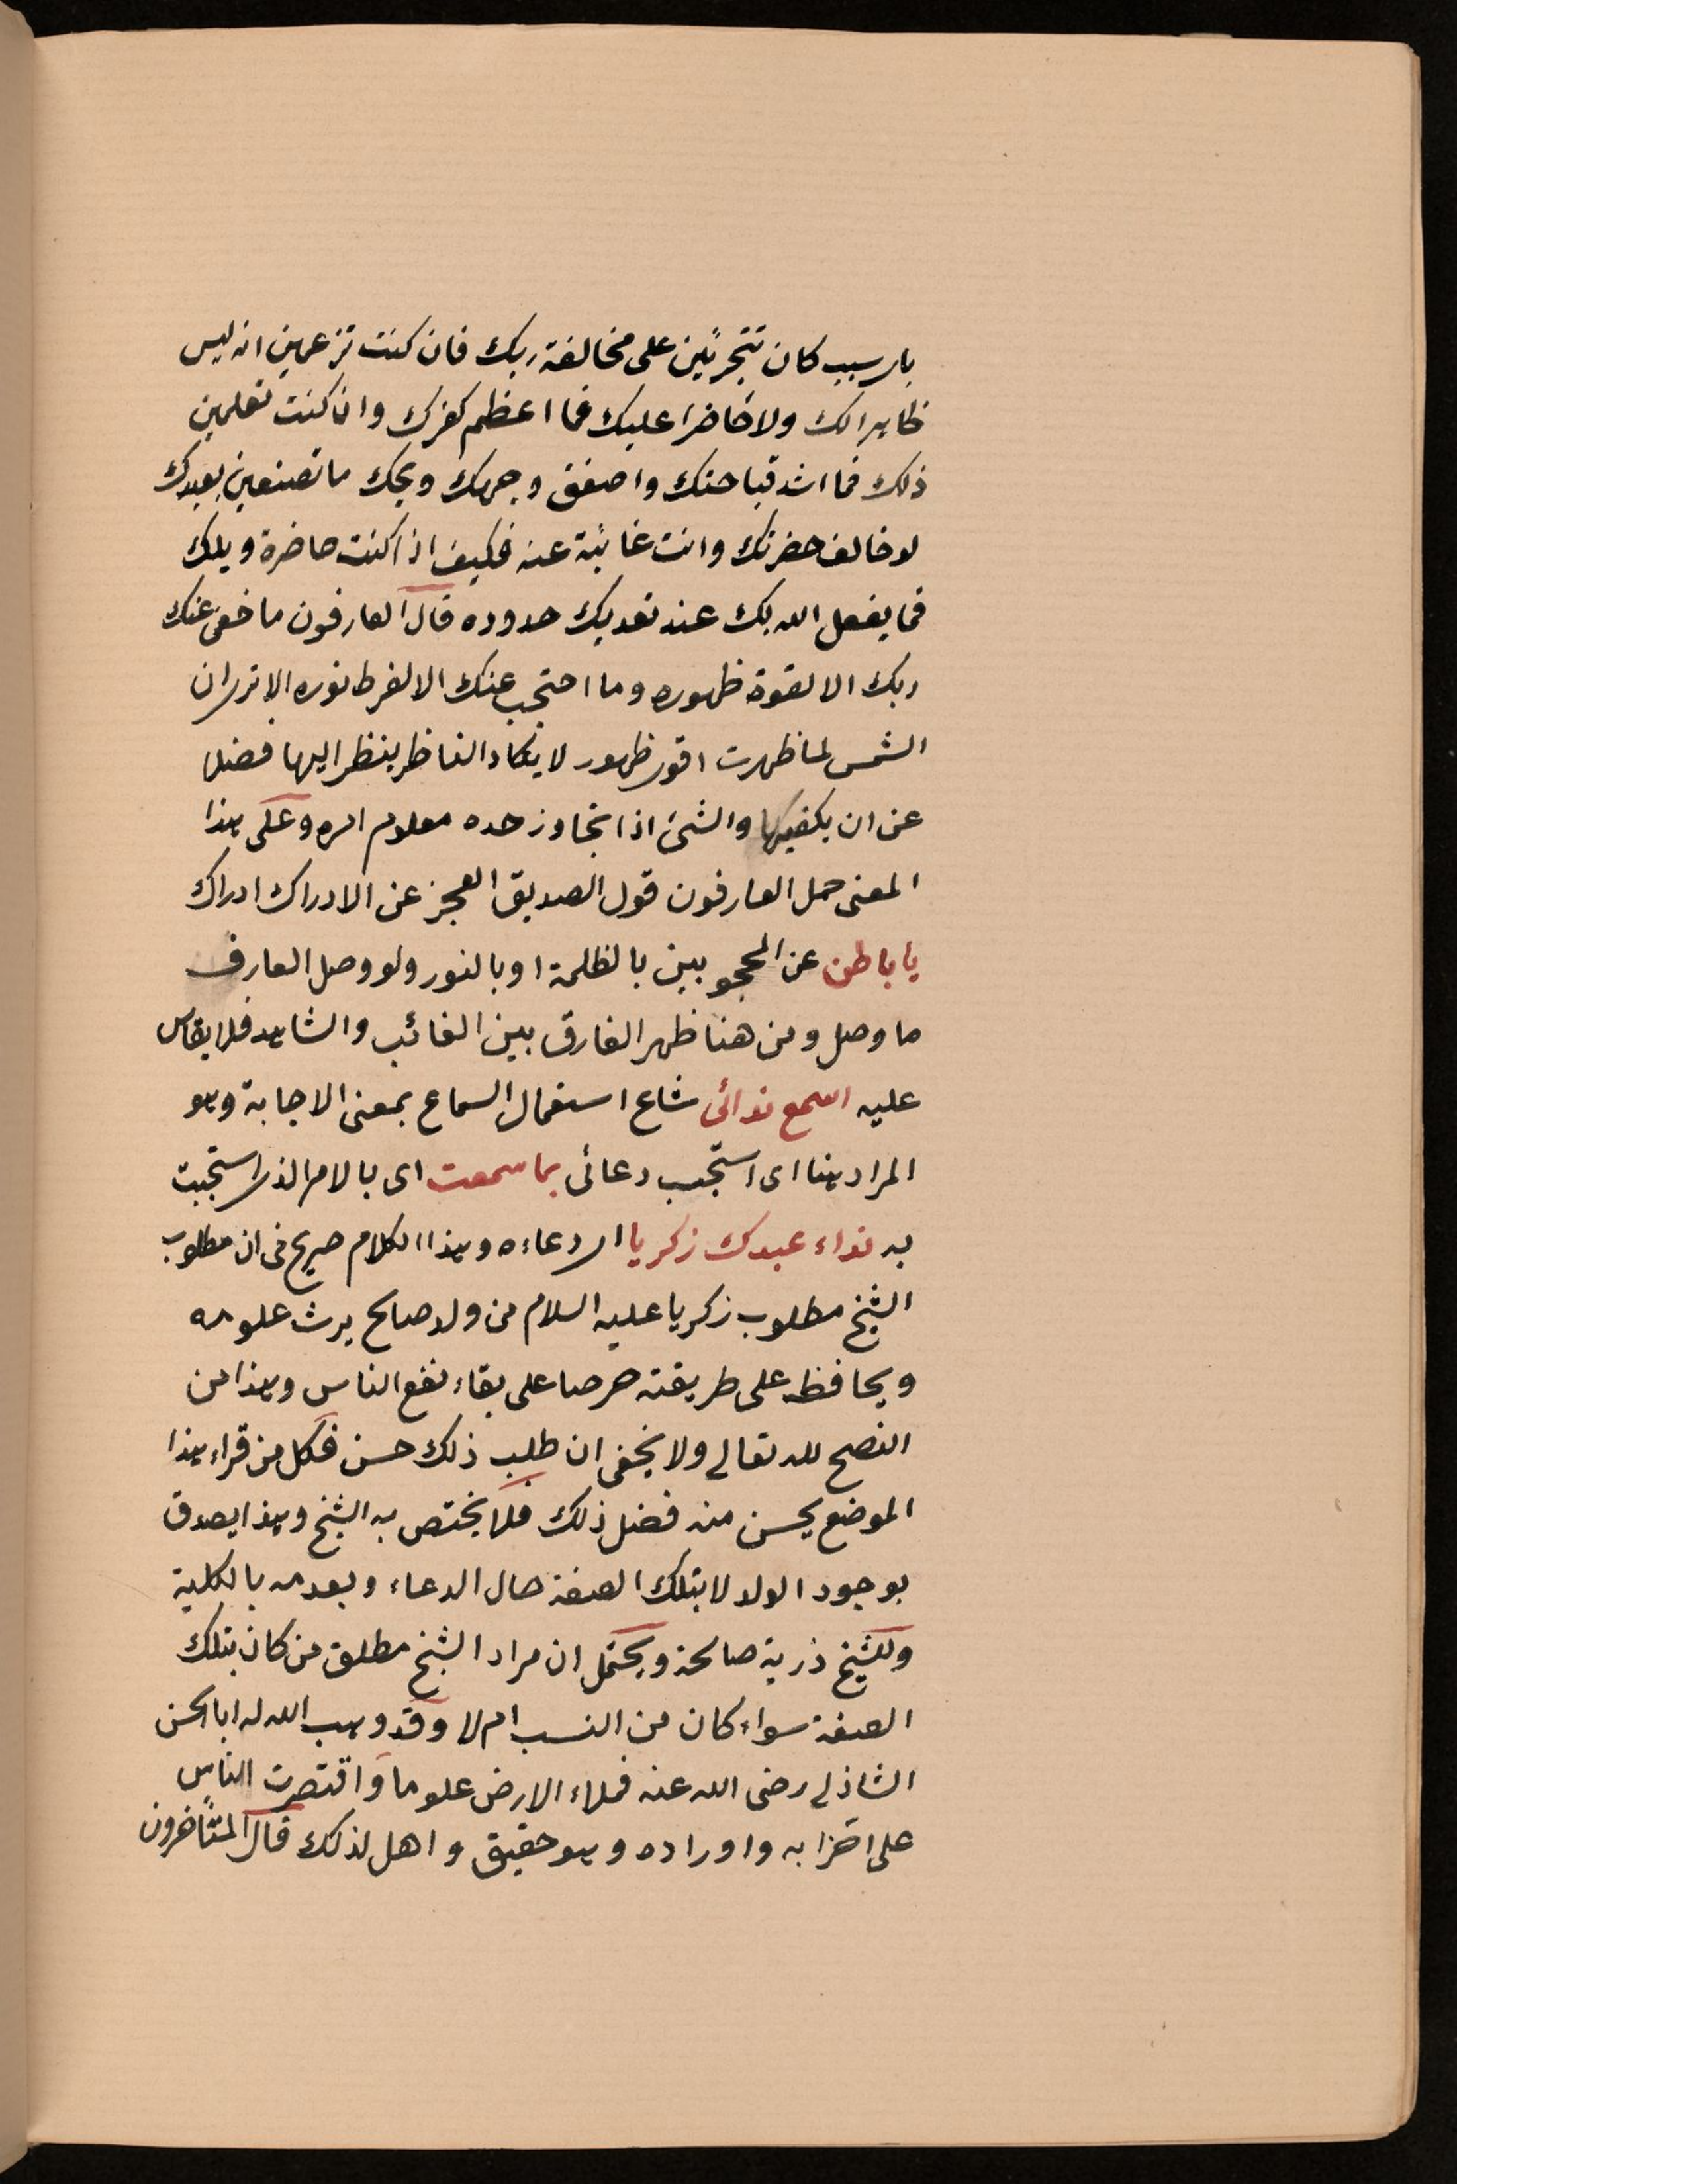 باى سبب كان تتجرئين على مخالفة ربك فان كنت تزعمين انه ليس
ظاهرا لك ولا حاضرا عليك فما اعظم كفرك وان كنت تعلمين
ذلك فما اشد قباحتك واصفق وجهك ويحك ما تصنعين بعبدك
لو خالف حضرتك وانت غائبة عنه فكيف اذا كنت حاضرة ويلك
فما يفعل الله بك عند تعديك حدوده قال العارفون ما خفى عنك
ربك الا لقوة ظهوره وما احتجب عنك الا لفرط نوره الا ترى ان
الشمس لما ظهرت اقوى ظهور لا يكاد الناظر ينظر اليها فضلا
عن ان يكفيها والشئ اذا تجاوز حده معلوم امره وعلى هذا
المعنى حمل العارفون قول الصديق العجز عن الادراك ادراك
يا باطن عن المحجوبين بالظلمة او بالنور ولو وصل العارف
ما وصل ومن هنا ظهر الفارق بين الغائب والشاهد فلا يقاس
عليه اسمع ندائى شاع استعمال السماع بمعنى الاجابة وهو
المراد هنا اى استجب دعائى بما سمعت اى بالامر الذى استجبت
به نداء عبدك زكريا اى دعاءه وهذا الكلام صريح فى ان مطلوب
الشيخ مطلوب زكريا عليه السلام من ولد صالح يرث علومه
ويحافظ على طريقته حرصا على بقاء نفع الناس وهذا من
النصح لله تعالى ولا يخفى ان طلب ذلك حسن فكل من قراء هذا
الموضع يحسن منه فضل ذلك فلا يختص به الشيخ وهذا يصدق
بوجود الولد لا بتلك الصفة حال الدعاء وبعدمه بالكلية
وللشيخ ذرية صالحة ويحتمل ان مراد الشيخ مطلق من كان بتلك
الصفة سواء كان من النسب ام لا وقد وهب الله له ابا الحسن
الشاذلى رضى الله عنه فملاء الارض علوما واقتصرت الناس
على احزابه واوراده وهو حقيق واهل لذلك قال المتأخرون